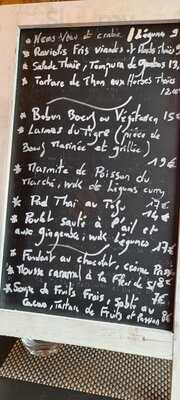 Nems Veau et crabe / Légumes 9
Raviolis Frits viandes et
Salade Thaïe, Tempura de Gambas 13,
Tartare de Thon aux Herbes Thaïes
12
Bobun Boeuf ou Végétarien 15
Larmes du tigre (pièce de
Boeuf Marinée et grillée)
19€
Marmite de Poisson du
Marché, wok de légumes curry,
17€
Pad Thai au Tofu
14€
Poulet sauté à l'ail et
aux gingembre, wok Légumes 17€
Fondant au chocolat, crème
Mousse caramel à la Fleur de Sel
8€
Soupe de Fruits Frais, Sablé au 7€
Cacao, Tartare de Fruits et Passion
8€